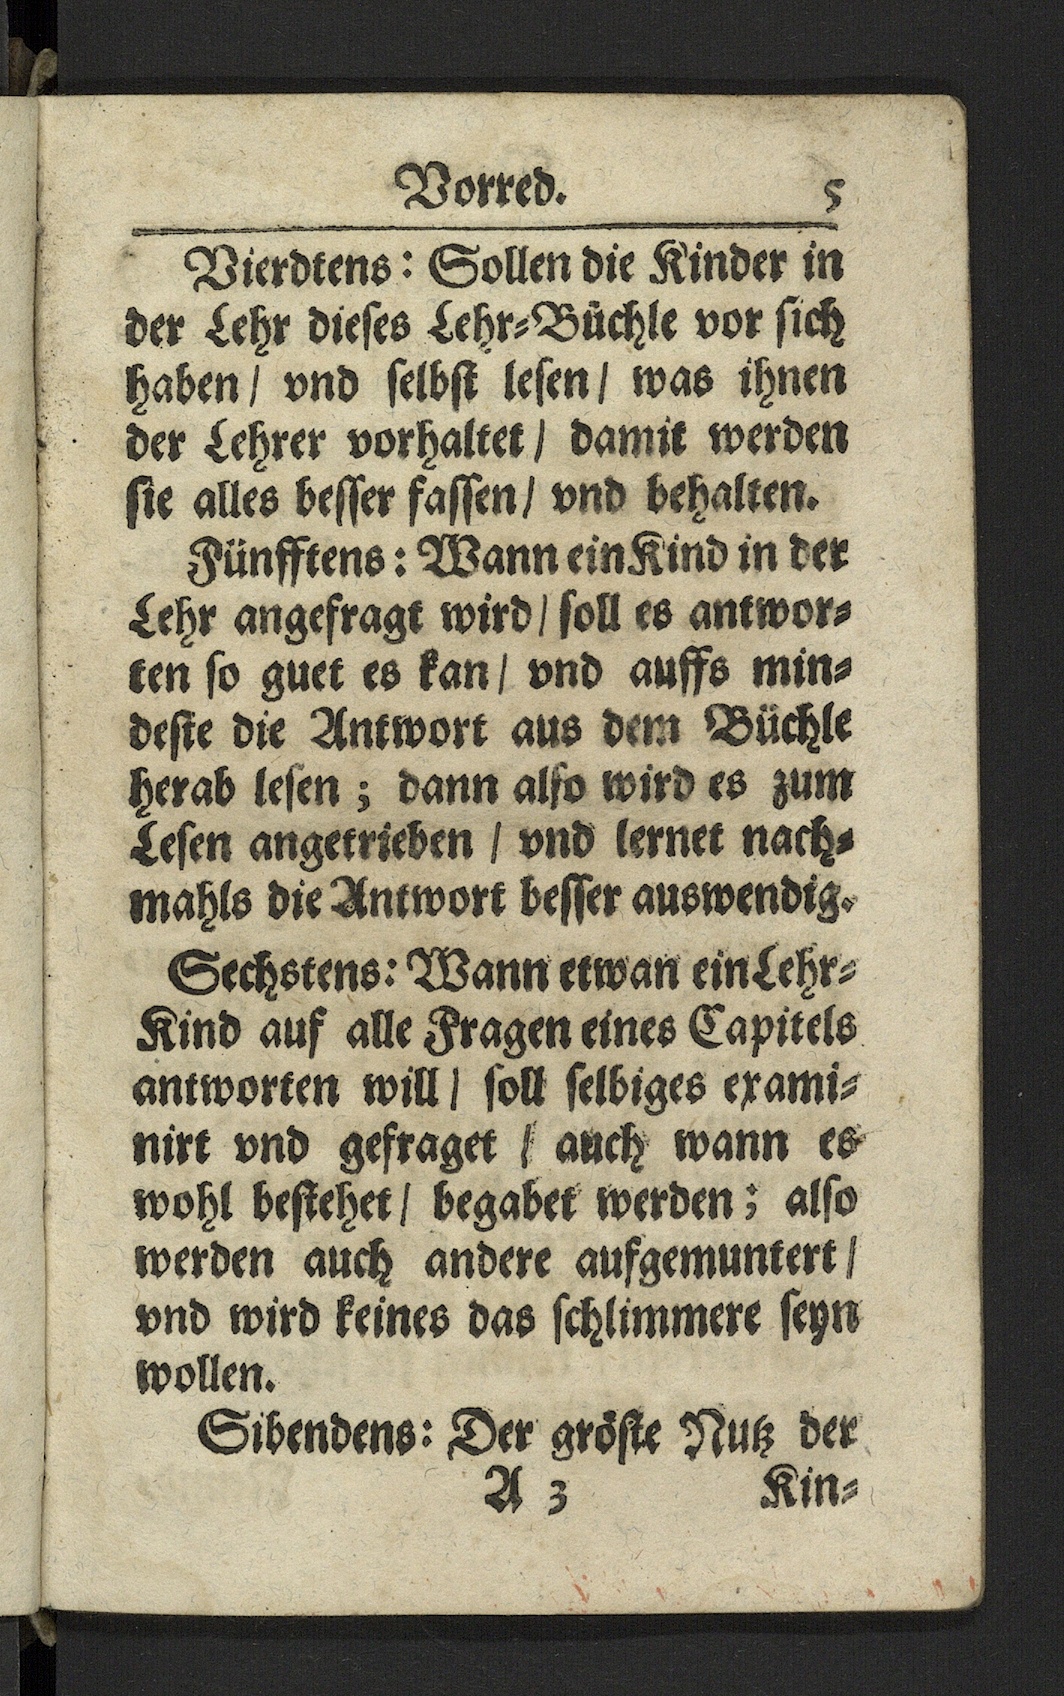 Vorred. 5
Vierdtens: Sollen die Kinder in
der Lehr dieſes Lehr⸗Büchle vor ſich
haben/ vnd ſelbſt leſen/ was ihnen
der Lehrer vorhaltet/ damit werden
ſie alles beſſer faſſen/ vnd behalten.
Fünfftens: Wann ein Kind in der
Lehr angefragt wird/ ſoll es antwor⸗
ten ſo guet es kan/ vnd auffs min⸗
deſte die Antwort aus dem Büchle
herab leſen; dann alſo wird es zum
Leſen angetrieben / vnd lernet nach⸗
mahls die Antwort beſſer auswendig.
Sechstens: Wann etwan ein Lehr⸗
Kind auf alle Fragen eines Capitels
antworten will/ ſoll ſelbiges exami⸗
nirt vnd gefraget / auch wann es
wohl beſtehet/ begabet werden; alſo
werden auch andere aufgemuntert/
vnd wird keines das ſchlimmere ſeyn
wollen.
Sibendens: Der gröſte Nutz der
A 3 Kin⸗